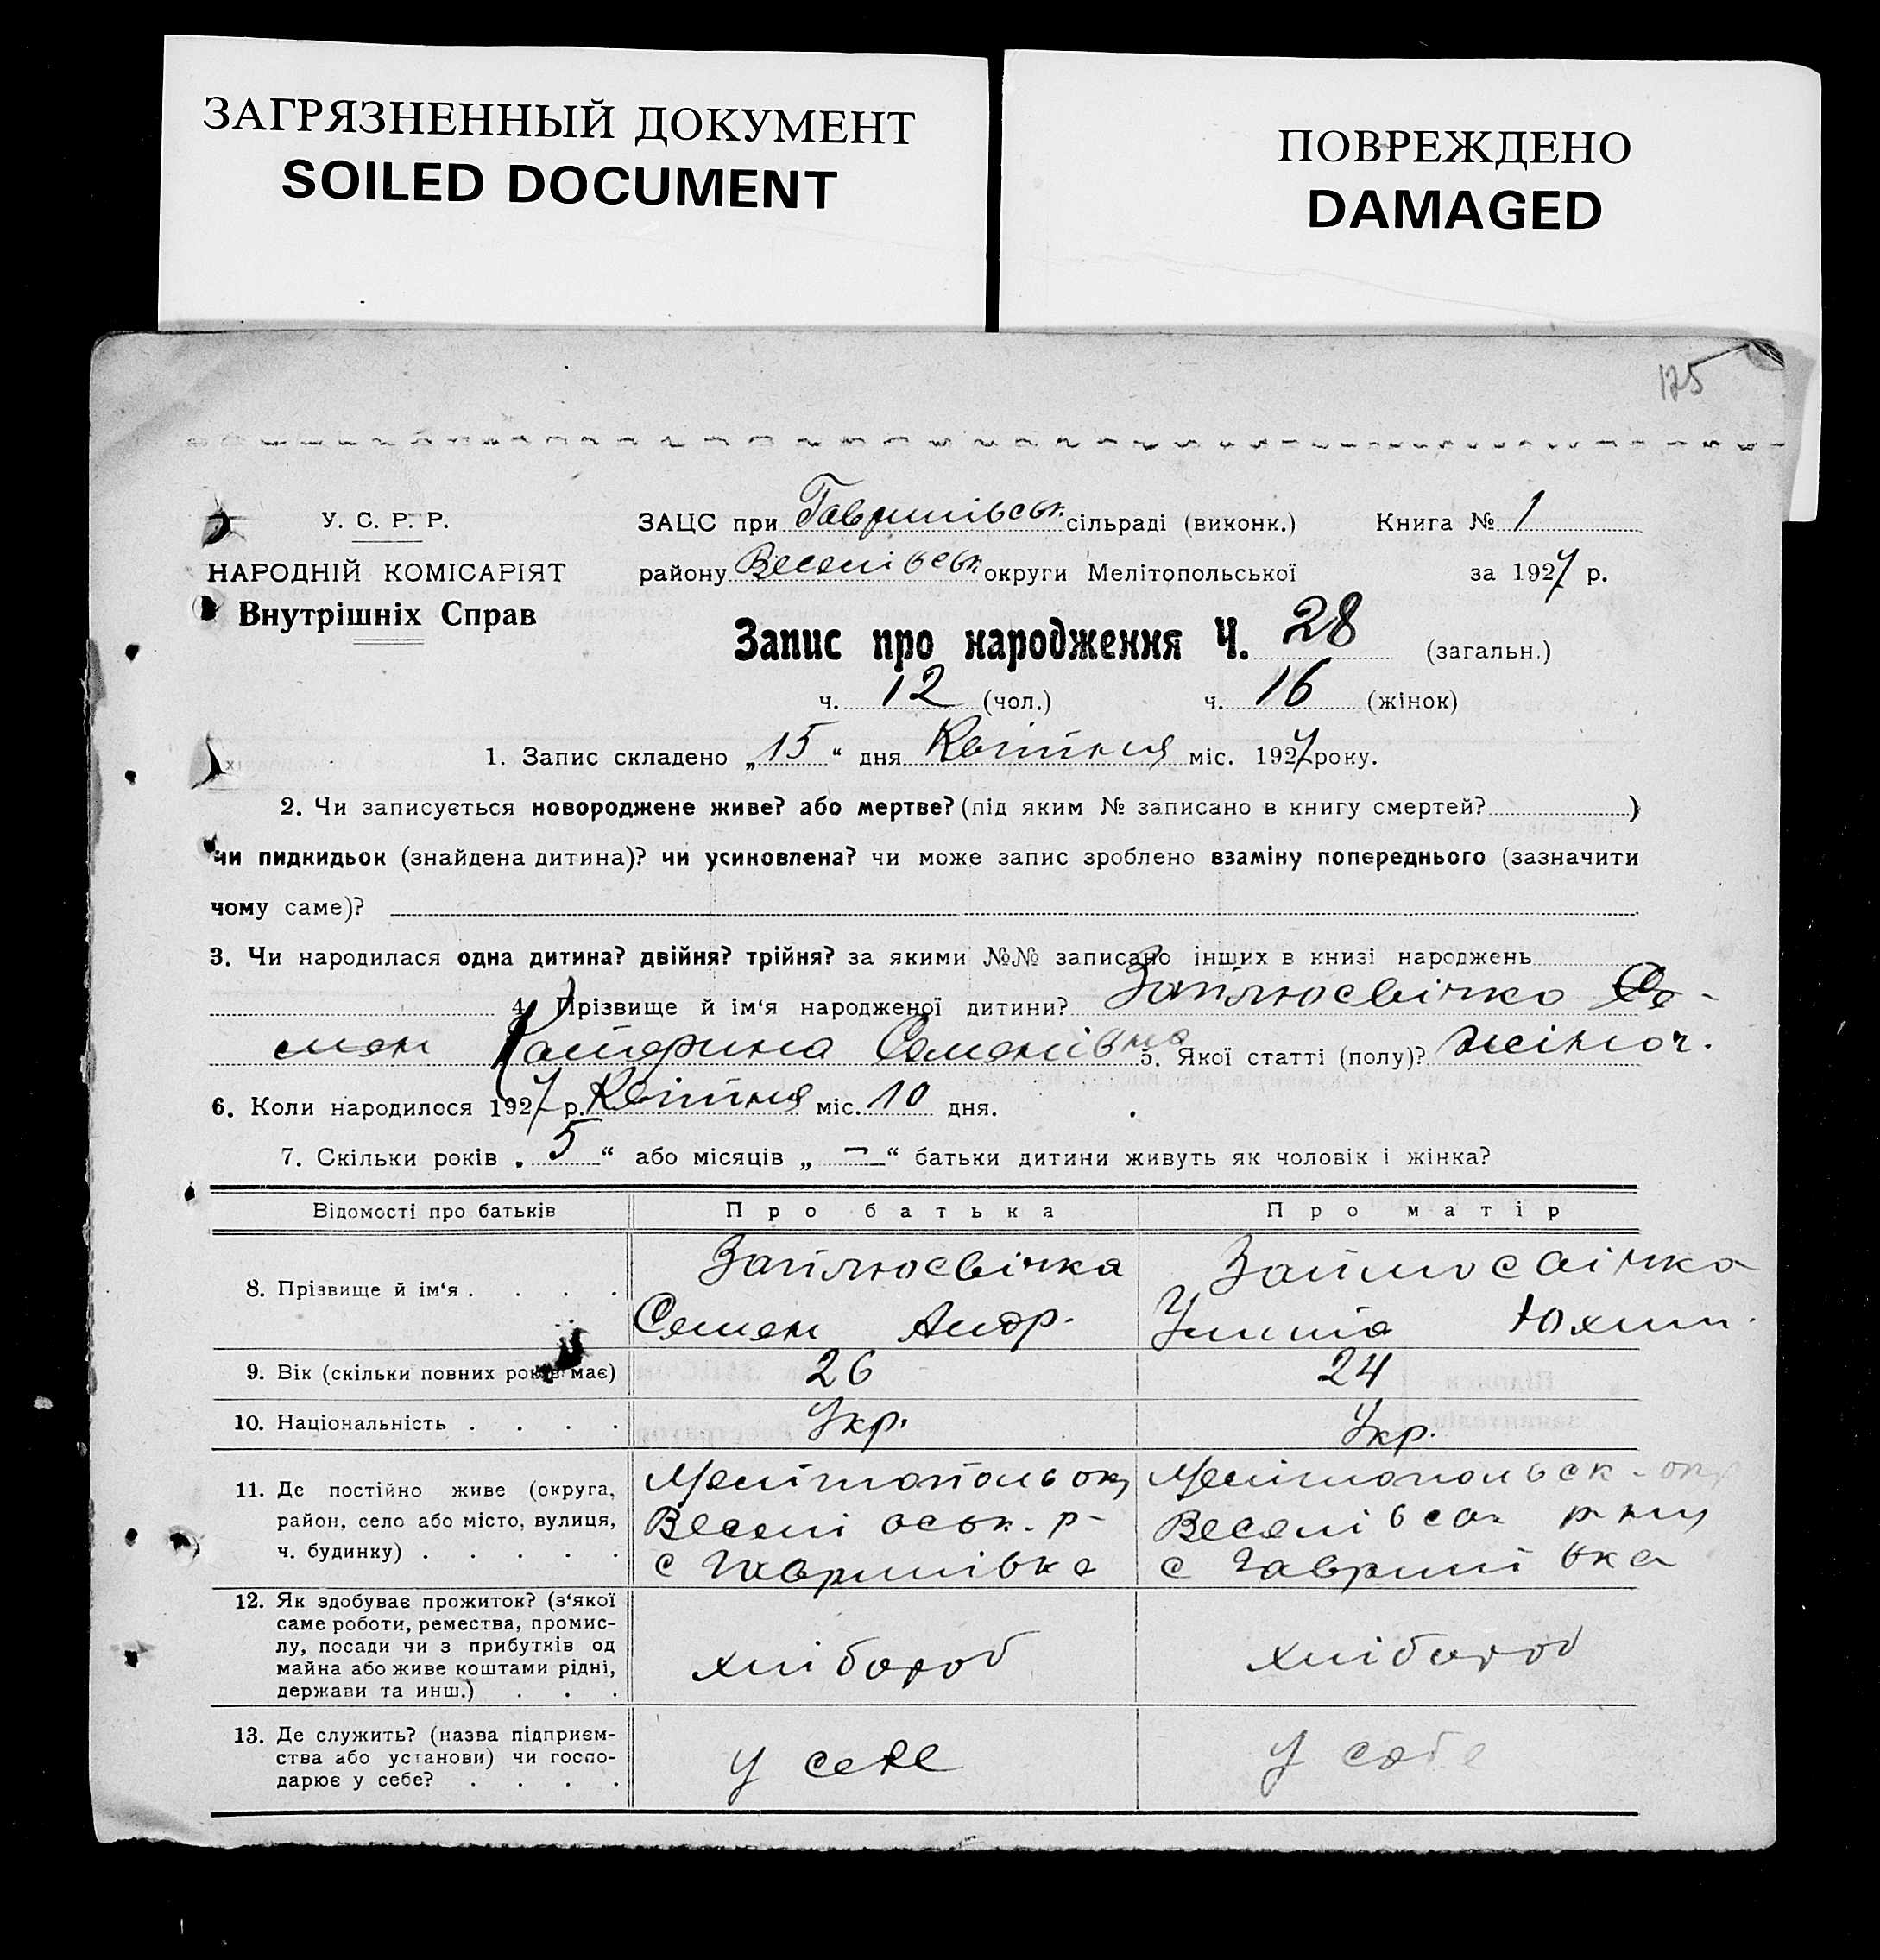 ЗАГРЯЗНЕННЫЙ ДОКУМЕНТ
SOILED DOCUMENT
ПОВРЕЖДЕНО
DAMAGED
125
У. С. Р. Р.
НАРОДНІЙ КОМІСАРІЯТ
Внутрішніх Справ
ЗАЦС при Гаврилівськ. сільраді (виконк.) Книга № 1
району Веселівськ. округи Мелітопольської за 1927 р.
Запис про народження Ч. 28 (загальн.)
ч. 12 (чол.) ч. 16 (жінок)
1. Запис складено „15“ дня Квітня міс. 1927 року.
2. Чи записується новороджене живе? або мертве? (під яким № записано в книгу смертей? )
чи пидкидьок (знайдена дитина)? чи усиновлена? чи може запис зроблено взаміну попереднього (зазначити
чому саме)?
3. Чи народилася одна дитина? двійня? трійня? за якими №№ записано інших в книзі народжень
4. Прізвище й ім‘я народженої дитини? Заплюсвічко Се-
мен Катерина Семенівна 5. Якої статті (полу)? жіноч.
6. Коли народилося 1927 р. Квітня міс. 10 дня.
7. Скільки років „5“ або місяців „—“ батьки дитини живуть як чоловік і жінка?
Відомості про батьків Про батька Про матір
8. Прізвище й ім‘я . . . . Заплюсвічка Заплюсвічка
Семен Андр. Улита Юхим.
9. Вік (скільки повних років має) 26 24
10. Національність . . . . Укр. Укр.
11. Де постійно живе (округа, район, село або місто, вулиця, ч. будинку) . . . . .
Мелітополь ок,
Веселівськ. р-
с Гаврилівка
Мелітопольськ-ок
Веселівськ р-ну
с Гаврилівка
12. Як здобуває прожиток? (з‘якої
саме роботи, ремества, промис-
лу, посади чи з прибутків од
майна або живе коштами рідні,
держави та инш.) . . .
хлібороб хлібороб
13. Де служить? (назва підприєм-
ства або установи) чи госпо-
дарює у себе? . . . .
у себе у себе